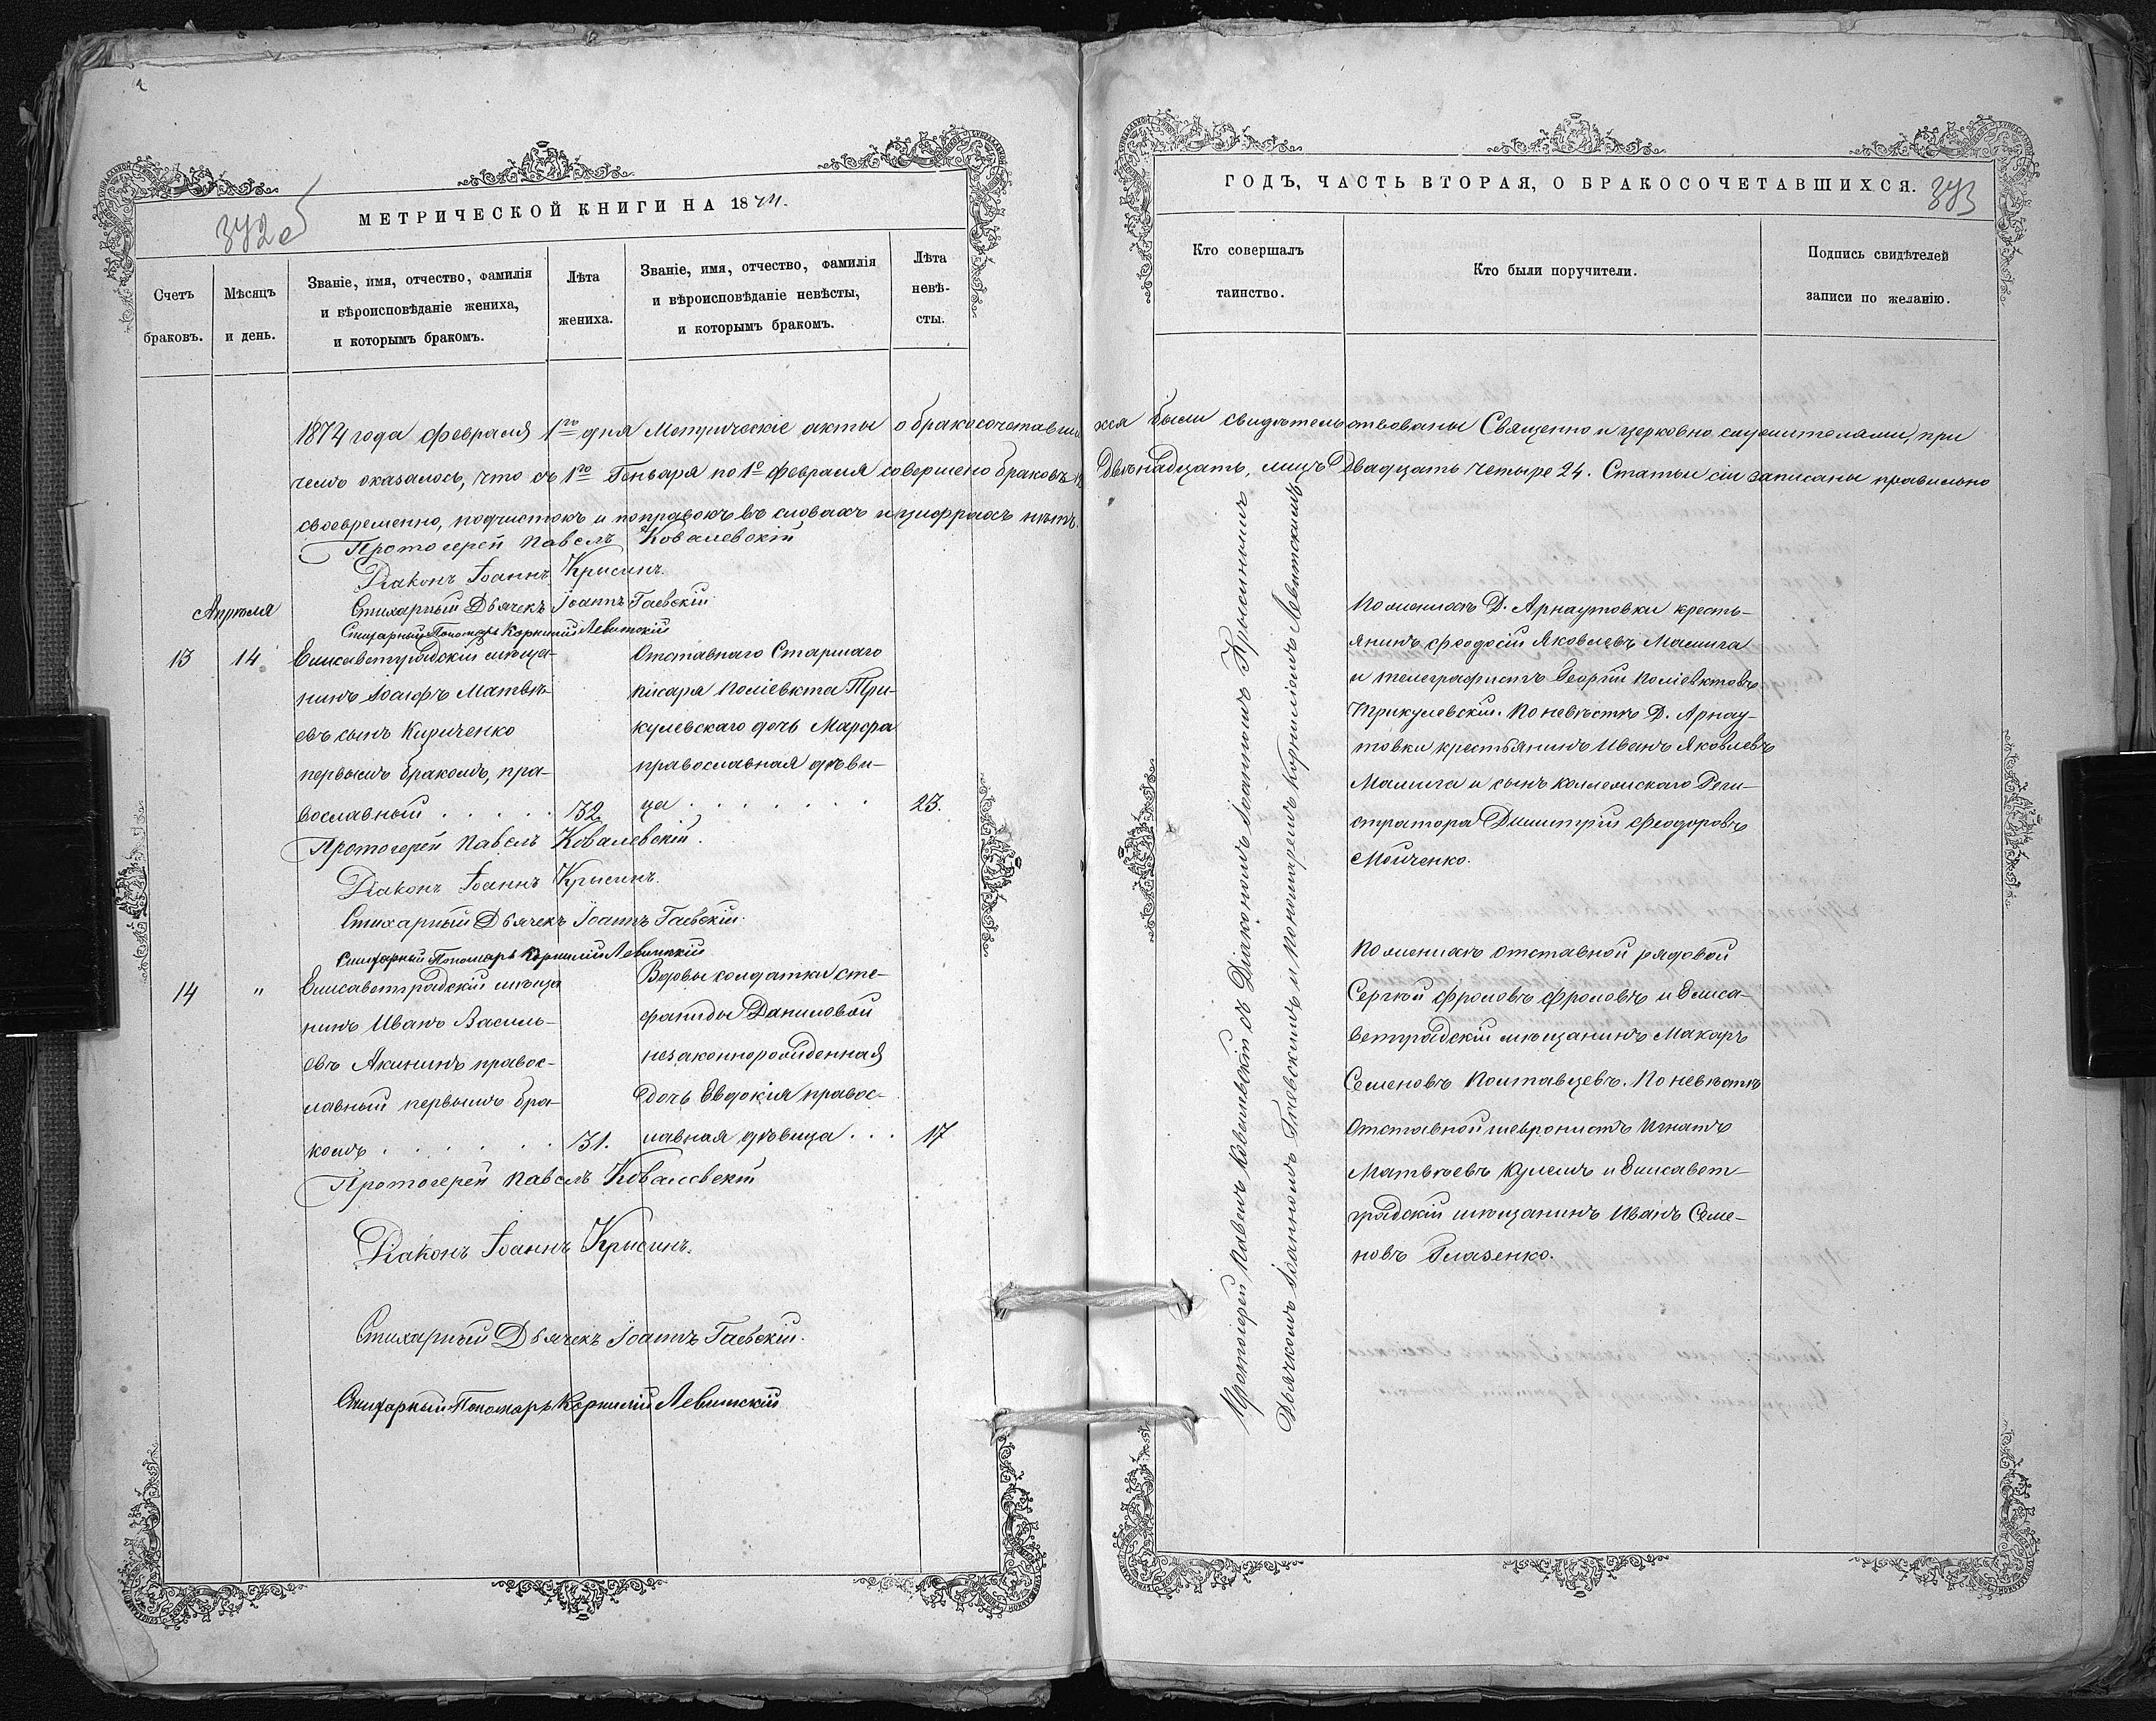 МЕТРИЧЕСКОЙ КНИГИ НА 1874.
372 об
Счетъ браковъ.
Мѣсяцъ и день.
Званіе, имя, отчество, фамилія
и вѣроисповѣданіе жениха,
и которымъ бракомъ.
Лѣта жениха.
Званіе, имя, отчество, фамилія
и вѣроисповѣданіе невѣсты,
и которымъ бракомъ.
Лѣта невѣ-
сты.
1874 года Февраля 1го дня Метрическіе акты о бракосочетавши
чемъ оказалось, что съ 1го Генваря по 1е Февраля совершено браковъ 12
своевременно, подчистокъ и поправокъ въ словахъ и цифрахъ нѣтъ.
Протоіерей Павелъ Ковалевскій
Діаконъ Іоаннъ Крысинъ.
Стихарный Дьячекъ Іоаннъ Гаевскій
Стихарный Пономарь Корнилій Левитскій
Апрѣля
13
14
Елисаветградскій мѣща-
нинъ Іосифъ Матвѣ-
евъ сынъ Кириченко
первымъ бракомъ, пра-
вославный . . . . .
32.
Отставнаго Старшаго
писаря Поліевкта При-
кулевскаго дочь Марфа
православная дѣви-
ца . . . . . . .
23.
Протоіерей Павелъ Ковалевскій.
Діаконъ Іоаннъ Крысинъ.
Стихарный Дьячекъ Іоаннъ Гаевскій.
Стихарный Пономарь Корнилій Левитскій
14
"
Елисаветградскій мѣща
нинъ Иванъ Василь-
евъ Акининъ правос-
лавный первымъ бра-
комъ . . . . . .
31.
Вдовы солдатки Сте-
фаниды Даниловой
незаконнорожденная
дочь Евдокія правос-
лавная дѣвица . . .
17
Протоіерей Павелъ Ковалевскій
Діаконъ Іоаннъ Крысинъ.
Стихарный Дьячекъ Іоаннъ Гаевскій.
Стихарный Пономарь Корнилій Левитскій
ГОДЪ, ЧАСТЬ ВТОРАЯ, О БРАКОСОЧЕТАВШИХСЯ.
373
Кто совершалъ
таинство.
Кто были поручители.
Подпись свидѣтелей
записи по желанію.
хся были свидѣтельствованы Священно и церковно служителями, при
Двѣнадцать, лицъ Двадцать четыре 24. Статьи сіи записаны правильно
Протоіерей Павелъ Ковалевскій съ Діакономъ Іоанномъ Крысинымъ
Дьячкомъ Іоанномъ Гаевскимъ и пономаремъ Корниліемъ Левитскимъ
По женихѣ Д. Арнаутовки кресть-
янинъ Феодосій Яковлевъ Малига
и телеграфистъ Георгій Поліевктовъ
Прикулевскій. По невѣстѣ Д. Арнау-
товки крестьянинъ Иванъ Яковлевъ
Малига и сынъ коллежскаго Реги-
стратора Димитрій Феодоровъ
Мойченко.
По женихѣ отставной рядовой
Сергѣй Фроловъ Фроловъ и Елиса-
ветградскій мѣщанинъ Макаръ
Семеновъ Полтавцевъ. По невѣстѣ
Отставной шевронистъ Игнатъ
Матвѣевъ Кулешъ и Елисавет-
градскій мѣщанинъ Иванъ Семе-
новъ Глазенко.